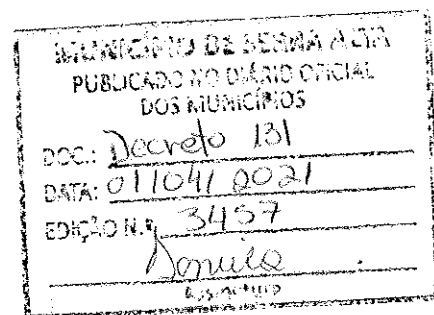 MUNICÍPIO DE SERRA ALTA
PUBLICADO NO DIÁRIO OFICIAL
DOS MUNICÍPIOS
DOC.: Decreto 131
DATA: 01/04/2021
EDIÇÃO N.º 3457
Assinatura